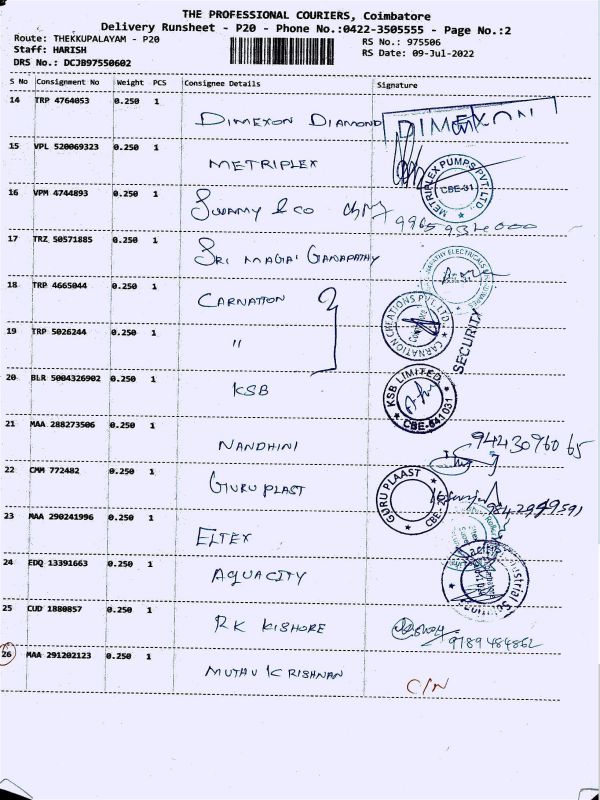 THE PROFESSIONAL COURIERS, Coimbatore
Delivery Runsheet - P20 - Phone No.:0422-3505555 - Page No.:2
Route: THEKKUPALAYAM - P20 RS No.: 975506
Staff: HARISH RS Date: 09-Jul-2022
DRS No.: DCJB97550602
S No Consignment No Weight PCS Consignee Details Signature
14 TRP 4764053 0.250 1 DIMEXON DIAMOND DIMEXON
15 VPL 520069323 0.250 1 METRIPLEX METRIPLEX PUMPS PVT. LTD CBE-31
16 VPM 4744893 0.250 1 SWAMY & CO
17 TRZ 50571885 0.250 1 SRI MAGAI GANAPATHY
18 TRP 4665044 0.250 1 CARNATION CARNATION CREATIONS PVT. LTD. SECURITY
19 TRP 5026244 0.250 1 "
20 BLR 5004326902 0.250 1 KSB KSB LIMITED CBE-641 031
21 MAA 288273506 0.250 1 NANDHINI 9443096065
22 CMM 772482 0.250 1 GURU PLAST GURU PLAAST
23 MAA 290241996 0.250 1 ELTEX
24 EDQ 13391663 0.250 1 AQUACITY
25 CUD 1880857 0.250 1 RK KISHORE 9789484862
26 MAA 291202123 0.250 1 MUTHU KRISHNAN C/N